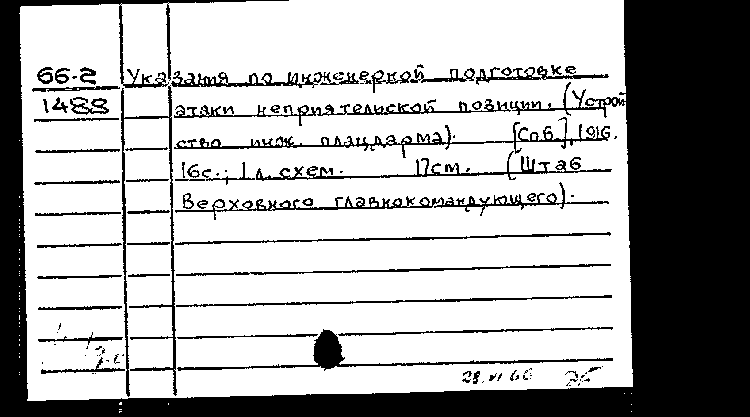 66-2 Указания по инженерной подготовке
1488 атаки неприятельской позиции. (Устрой
ство инж. плацдарма). [Спб.], 1916.
16с.; 1 л. схем. 17см. (Штаб
Верховного главнокомандующего).
28.VI 66